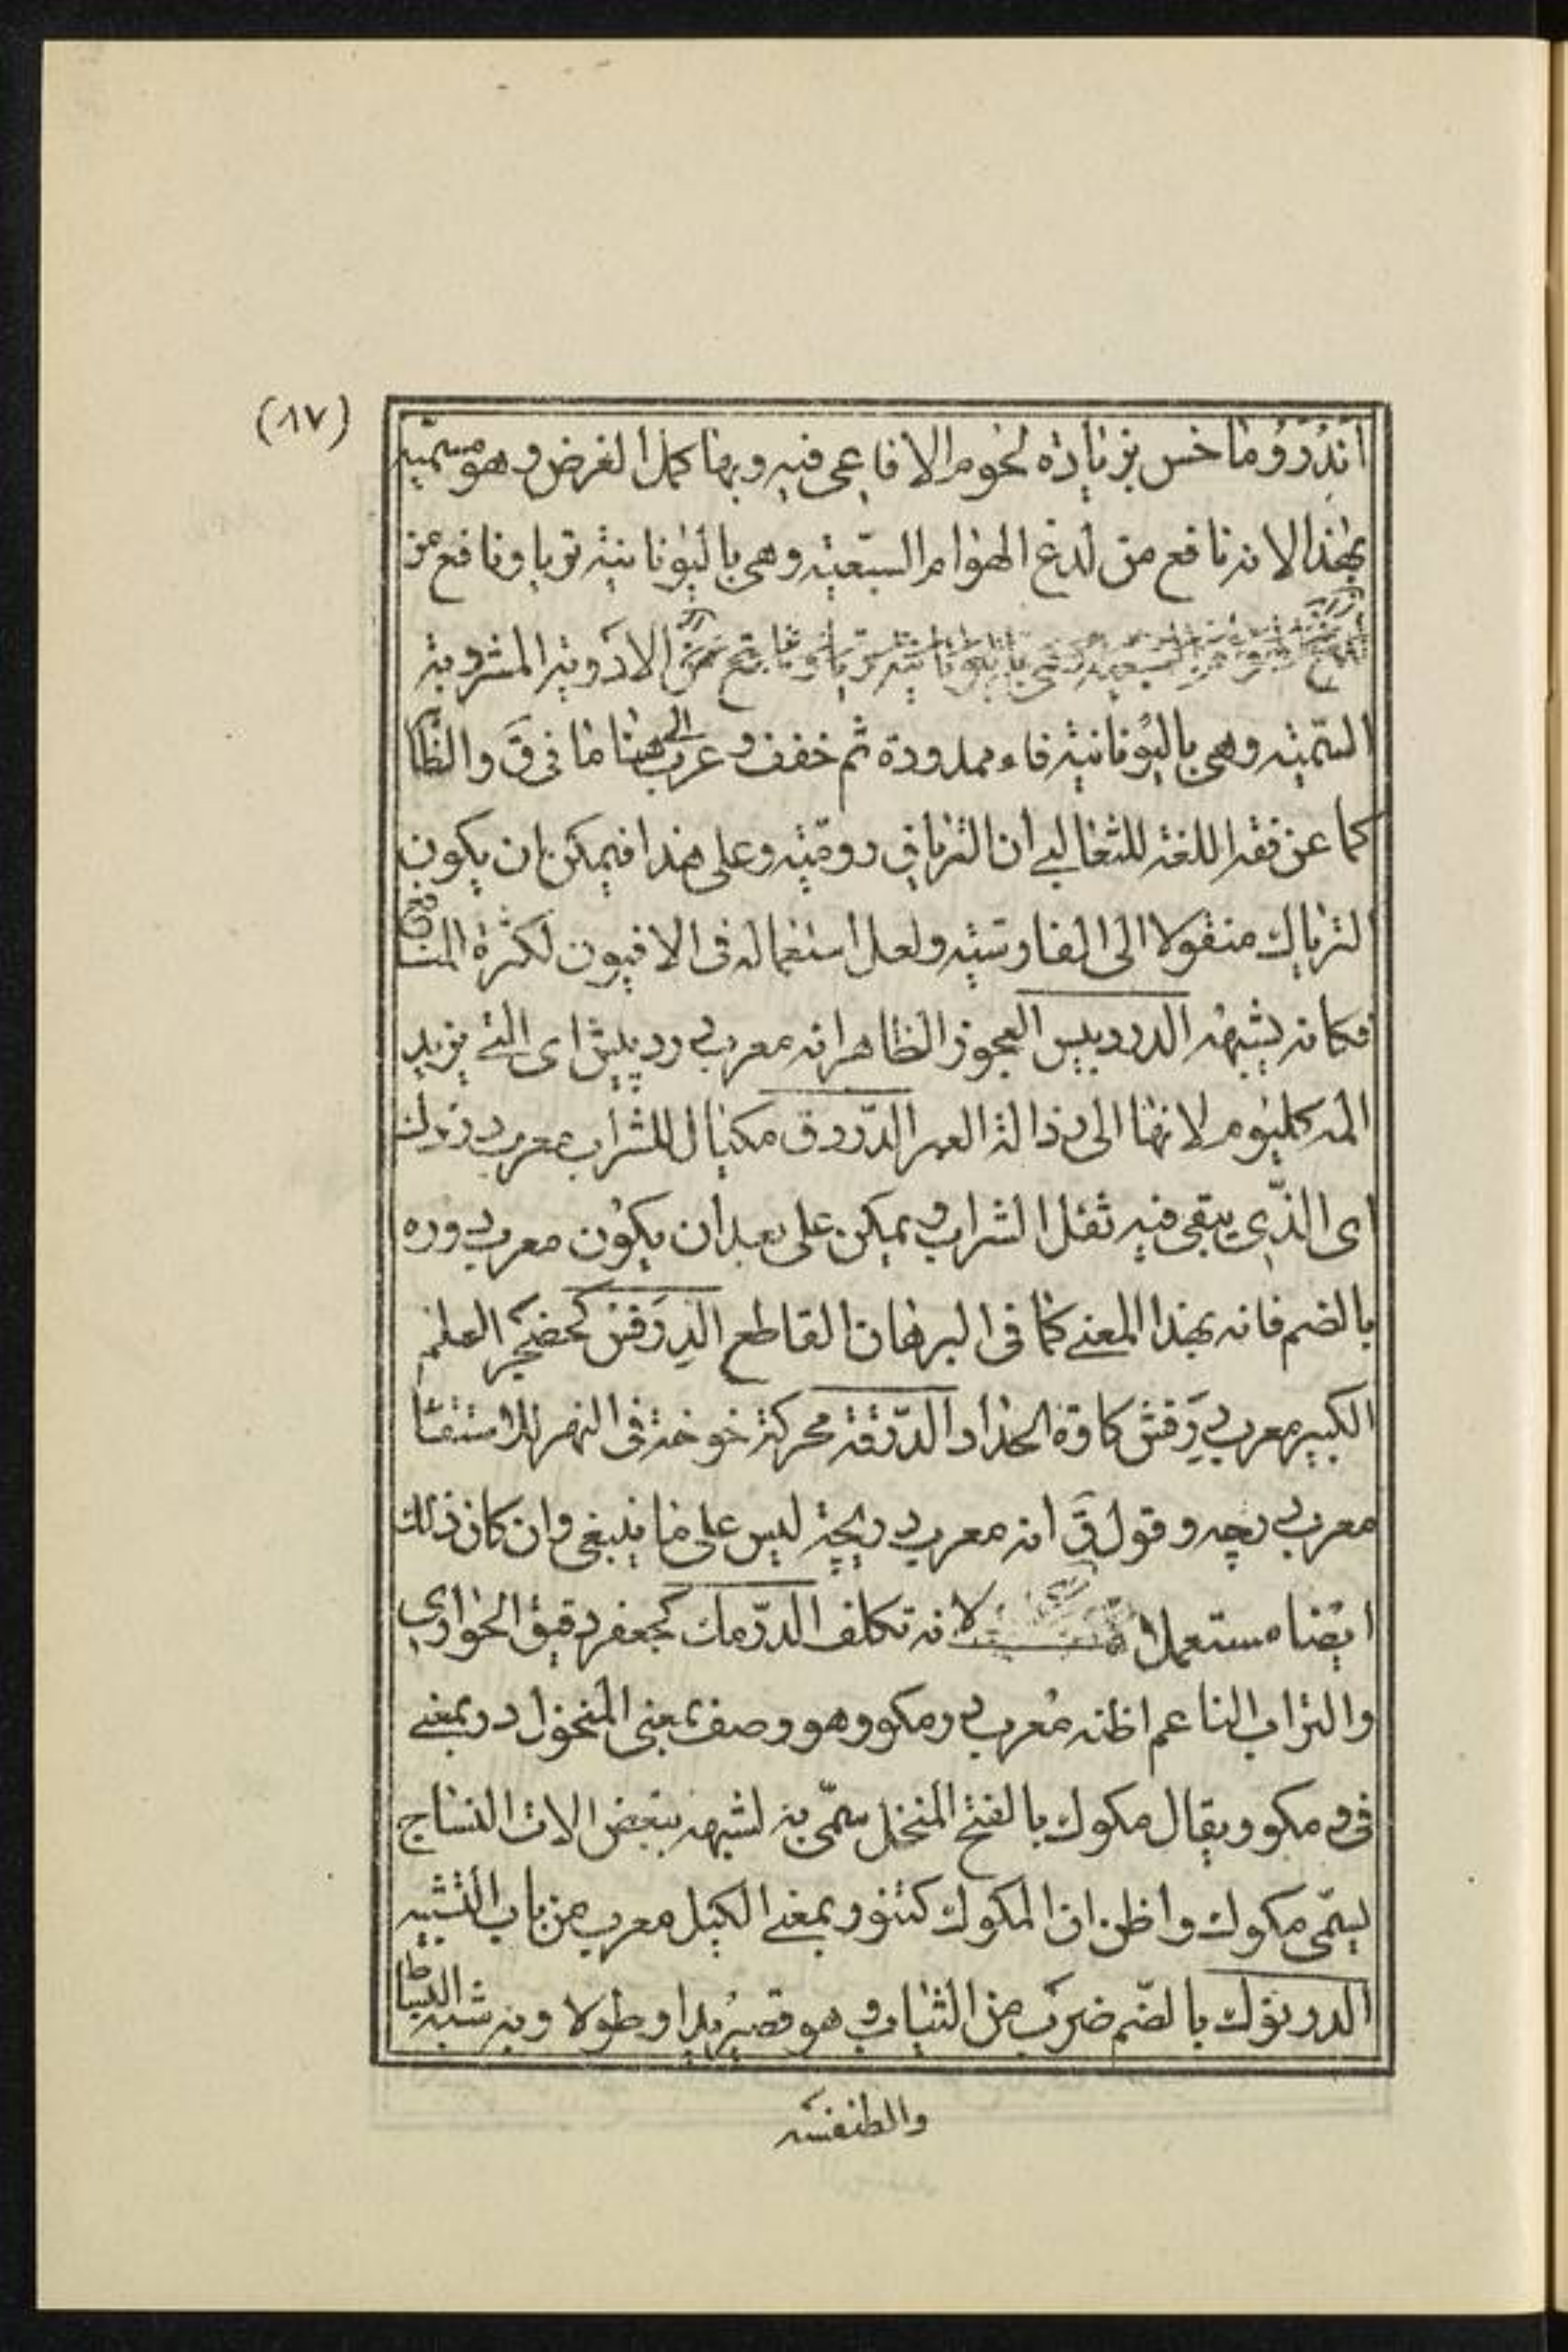 (٨٧)
اندروماخس بزيادة لحوم الافاعي فيه وبها كمل الغرض وهو مسميه
بهذا لانه نافع من لدغ الهوام السبعية وهي باليونانية تريا ونافع من
الادوية المشروبة
السمية وهي باليونانية قاء ممدودة ثم خفف وعرب الى هنا ما في ق والظا
كما عن فقه اللغة للثعالبي ان الترياق رومية وعلى هذا فيمكن ان يكون
الترياك منقولا الى الفارسية ولعل استعماله في الافيون لكثرة المنافع
فكانه يشبهه الدردبيس العجوز الظاهر انه معرب درد بيش اى التي يزيد
المه كليوم لانها الى رذالة العمر الدّروق مكيال للشراب معرب دردك
اى الذي يبقى فيه ثفل الشراب ويمكن على بعد ان يكون معرب دوره
بالضم فانه بهذا المعنى كما في البرهان القاطع الدِرَفْس كحضجر العلم
الكبير معرب دِرَفش كاوة الحداد الدّرَقة محركة خوخة في النهر للاستقا
معرب دريچه وقول ق انه معرب دريچة ليس على ما ينبغي وان كان ذلك
ايضا مستعملا لانه تكلف الدّرمك كجعفر دقيق الحوارى
والتراب الناعم اظنه معرب درمكو وهو وصف بمعنى المنخول در بمعنى
في و مكو ويقال مكوك بالفتح المنخل سمّي به لشبهه ببعض الات النساج
يسمّى مكوك واظن ان المكوك كتنور بمعنى الكيل معرب من باب التشبيه
الدرنوك بالضم ضرب من الثياب وهو قصير يدا وطولا وبه شبه البساط
والطنفسه